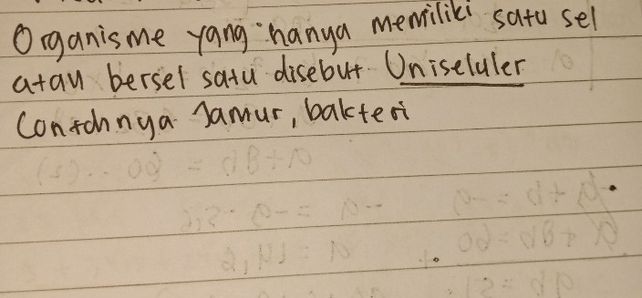 Organisme yang hanya memiliki satu sel
atau bersel satu disebut Uniseluler
Contohnya Jamur, bakteri